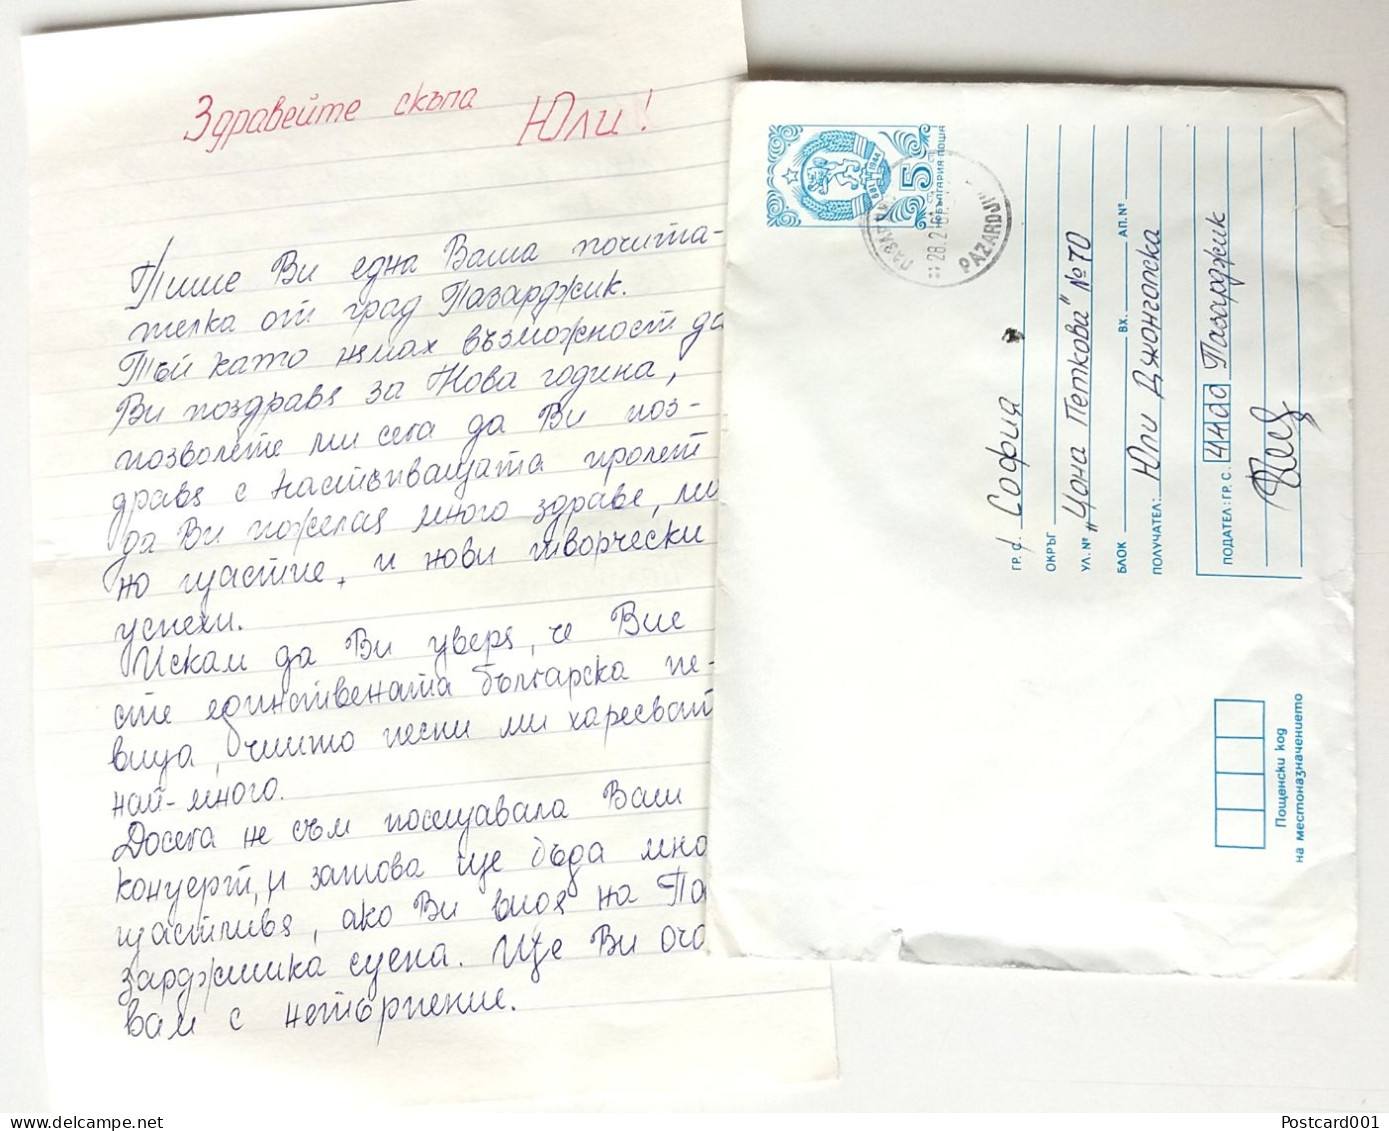 Здравейте скъпа Юли!
Пише Ви една Ваша почита-
телка от град Пазарджик.
Тъй като нямах възможност да
Ви поздравя за Нова година,
позволете ми сега да Ви поз-
дравя с настъпващата пролет
да Ви пожелая много здраве, мно
но щастие, и нови творчески
успехи.
Искам да Ви уверя, че Вие
сте единствената българска пе-
вица, чиито песни ми харесват
най-много.
Досега не съм посещавала Ваш
концерт, и затова ще бъда мно
щастлива, ако Ви видя на Па
зарджишка сцена. Ще Ви оча
вам с нетърпение.
681 1944
5 СТ
НР БЪЛГАРИЯ ПОЩА
28.2
PAZARDJIK
ГР. С. София
ОКРЪГ
УЛ. № „Цона Петкова" № 70
БЛОК ВХ. АП. №
ПОЛУЧАТЕЛ: Юли Джонголска
ПОДАТЕЛ: ГР. С. 4400 Пазарджик
Пощенски код
на местоназначението
Postcard001